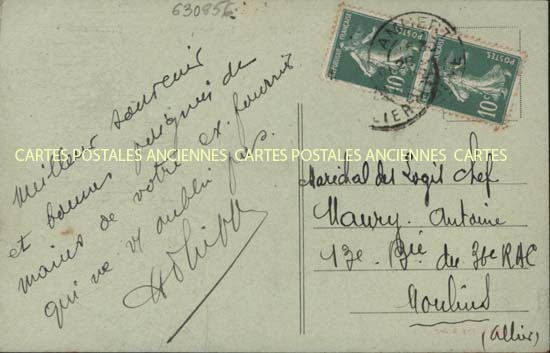 630856
Meilleur souvenir
et bonnes poignées de
mains de votre ex. fourrier
qui ne v/ oublie pas.
CARTES POSTALES ANCIENNES CARTES POSTALES ANCIENNES CARTES
RÉPUBLIQUE FRANÇAISE
POSTES
10c
POSTES
10c
Maréchal des Logis Chef
Maury. Antoine
13e. Bie du 36e RAC
Moulins
(Allier)